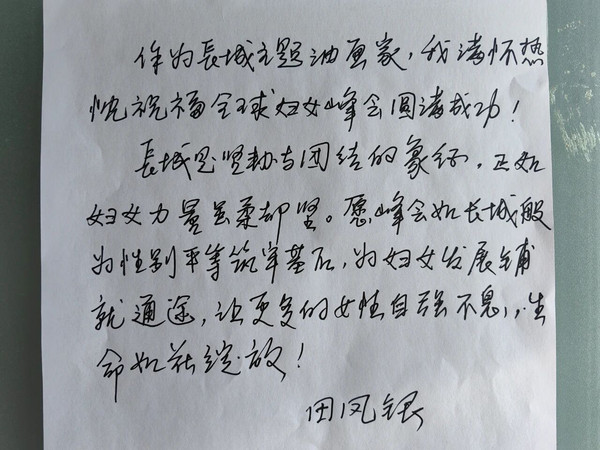 作为長城主题油画家，我满怀热
忱祝福全球妇女峰会圆满成功！
長城是坚韧与团结的象征，正如
妇女力量虽柔却坚。愿峰会如长城般
为性别平等筑牢基石，为妇女发展铺
就通途，让更多的女性自强不息，生
命如花绽放！
田凤银